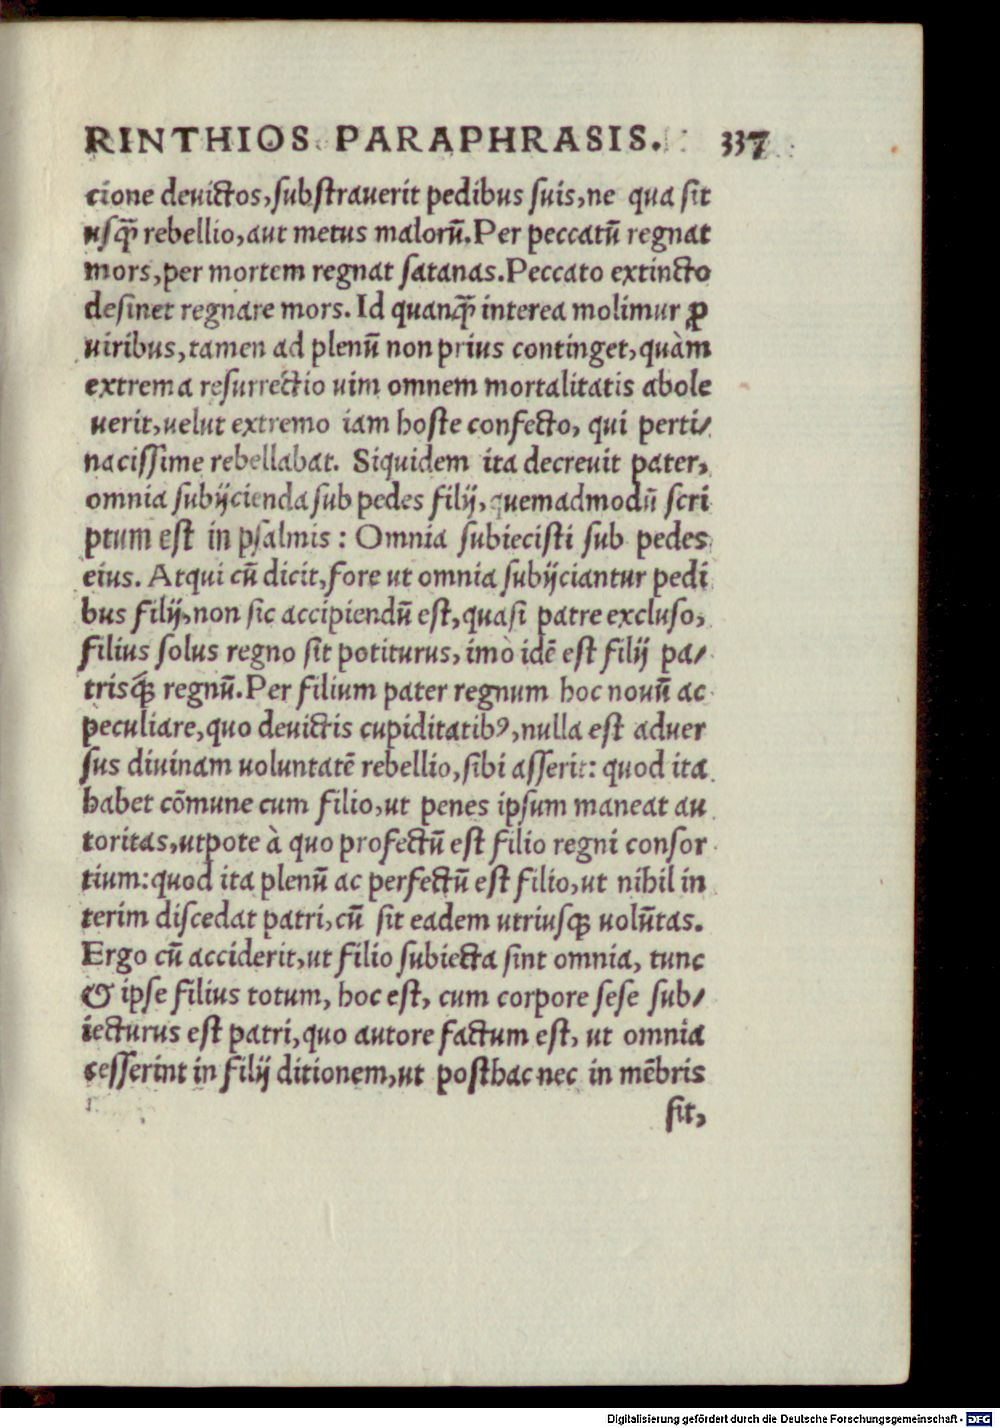 RINTHIOS PARAPHRASIS. 337
tione deuictos, substrauerit pedibus suis, ne qua sit
usq̃ rebellio, aut metus malorũ. Per peccatũ regnat
mors, per mortem regnat satanas. Peccato extincto
desinet regnare mors. Id quanq̃ interea molimur ꝓ
uiribus, tamen ad plenũ non prius continget, quàm
extrema resurrectio uim omnem mortalitatis abole
uerit, uelut extremo iam hoste confecto, qui perti/
nacissime rebellabat. Siquidem ita decreuit pater,
omnia subijcienda sub pedes filij, quemadmodũ scri
ptum est in psalmis: Omnia subiecisti sub pedes
eius. Atqui cũ dicit, fore ut omnia subijciantur pedi
bus filij, non sic accipiendũ est, quasi patre excluso,
filius solus regno sit potiturus, imò idẽ est filij pa/
trisq́; regnũ. Per filium pater regnum hoc nouũ ac
peculiare, quo deuictis cupiditatibꝰ, nulla est aduer
sus diuinam uoluntatẽ rebellio, sibi asserit: quod ita
habet cõmune cum filio, ut penes ipsum maneat au
toritas, utpote à quo profectũ est filio regni consor
tium: quod ita plenũ ac perfectũ est filio, ut nihil in
terim discedat patri, cũ sit eadem utriusq; uolũtas.
Ergo cũ acciderit, ut filio subiecta sint omnia, tunc
& ipse filius totum, hoc est, cum corpore sese sub/
iecturus est patri, quo autore factum est, ut omnia
cesserint in filij ditionem, ut posthac nec in mẽbris
sit,
Digitalisierung gefördert durch die Deutsche Forschungsgemeinschaft - DFG